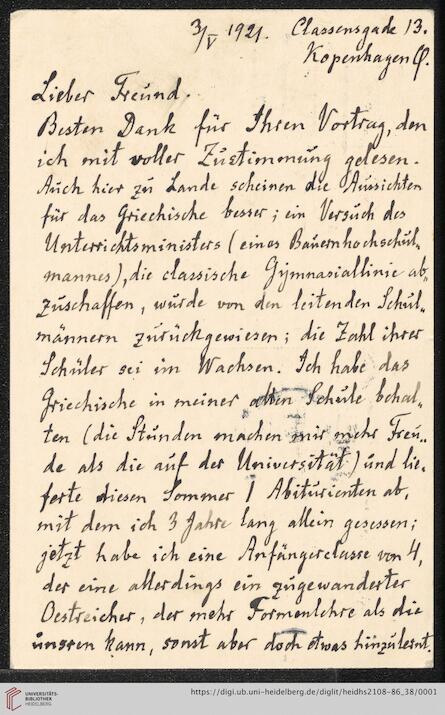 3/V 1921. Classensgade 13.
Kopenhagen Ø.
Lieber Freund.
Besten Dank für Ihren Vortrag, den
ich mit voller Zustimmung gelesen.
Auch hier zu Lande scheinen die Aussichten
für das Griechische besser; ein Versuch des
Unterrichtsministers (eines Bauernhochschul-
mannes), die classische Gymnasiallinie ab-
zuschaffen, wurde von den leitenden Schul-
männern zurückgewiesen; die Zahl ihrer
Schüler sei im Wachsen. Ich habe das
Griechische in meiner alten Schule behal-
ten (die Stunden machen mir mehr Freu-
de als die auf der Universität) und lie-
ferte diesen Sommer 1 Abiturienten ab,
mit dem ich 3 Jahre lang allein gesessen;
jetzt habe ich eine Anfängerclasse von 4,
der eine allerdings ein zugewanderter
Oestreicher, der mehr Formenlehre als die
unsren kann, sonst aber doch etwas hinzulernt.
UNIVERSITÄTS-
BIBLIOTHEK
HEIDELBERG
https://digi.ub.uni-heidelberg.de/diglit/heidhs2108-86_38/0001